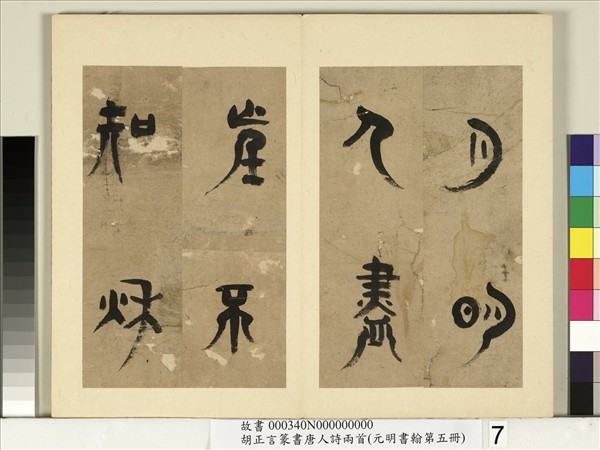 月明
人盡
望不
知秋
故書 000340N000000000
胡正言篆書唐人詩兩首(元明書翰第五冊)
7